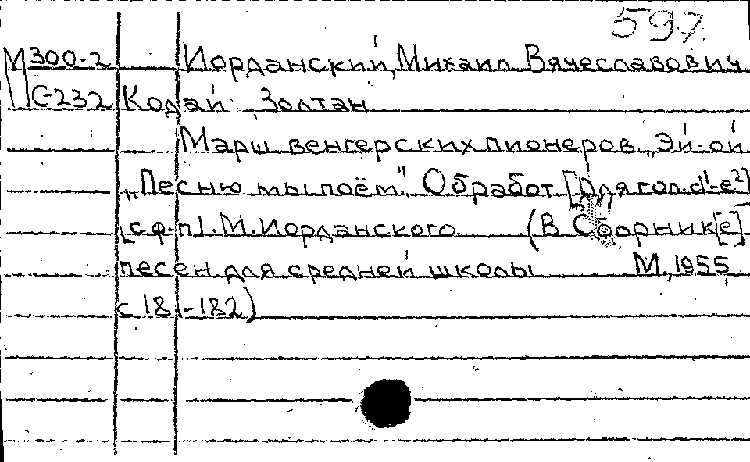 597.
М300-2 Иорданский, Михаил Вячеславович
С-232 Кодай Золтан
Марш венгерских пионеров „Эй-ой
„Песню мы поём". Обработ. [Для гол. d¹-e²]
[с ф-п]. М. Иорданского. (В Сборник[е]
песен для средней школы М., 1955
с 181-182)